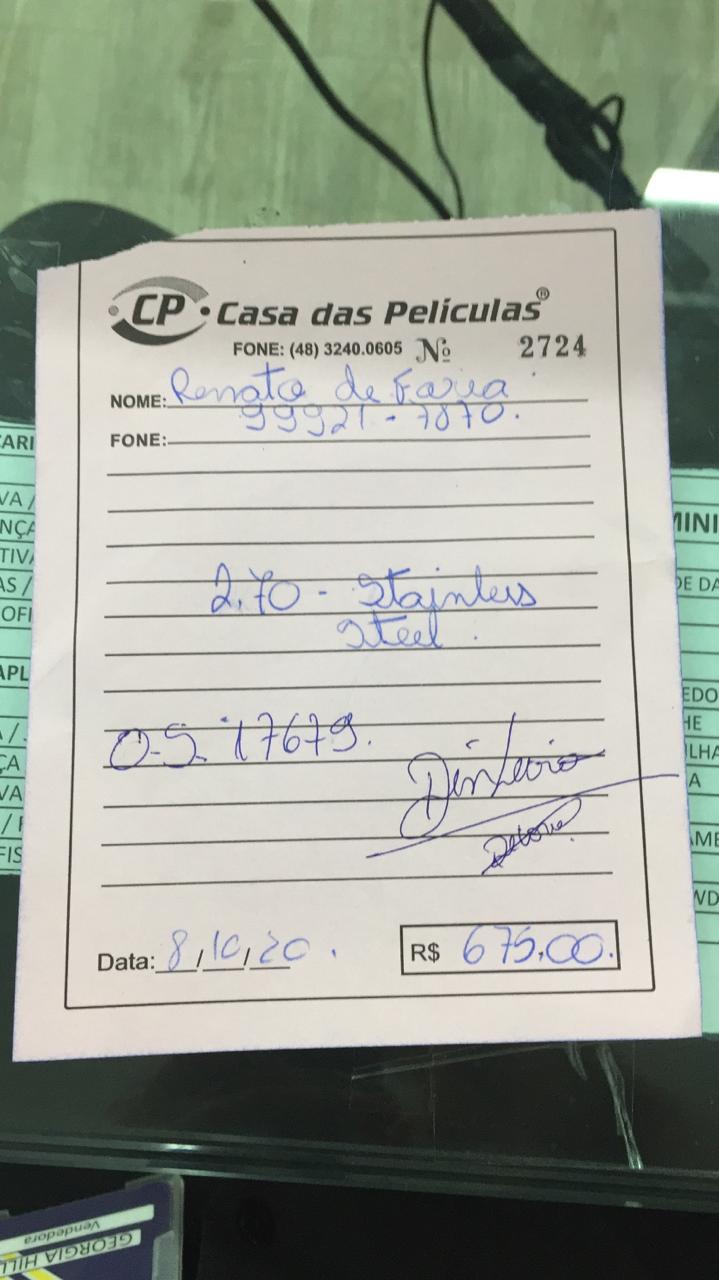 CP • Casa das Películas®
FONE: (48) 3240.0605 Nº 2724
NOME: Renato de Faria
99921-7870.
FONE:
2,70 - Stainless
Steel.
O.S. 17679.
Dinheiro
Data: 8/10/20. R$ 675,00.
CARI
VA /
NÇA
TIVA
AS /
OFI
APL
A / .
ÇA
VA
/ F
FIS
MINI
DE DA
EDO
HE
ILHA
A
AME
WD
GEORGIA HILL
Vendedora